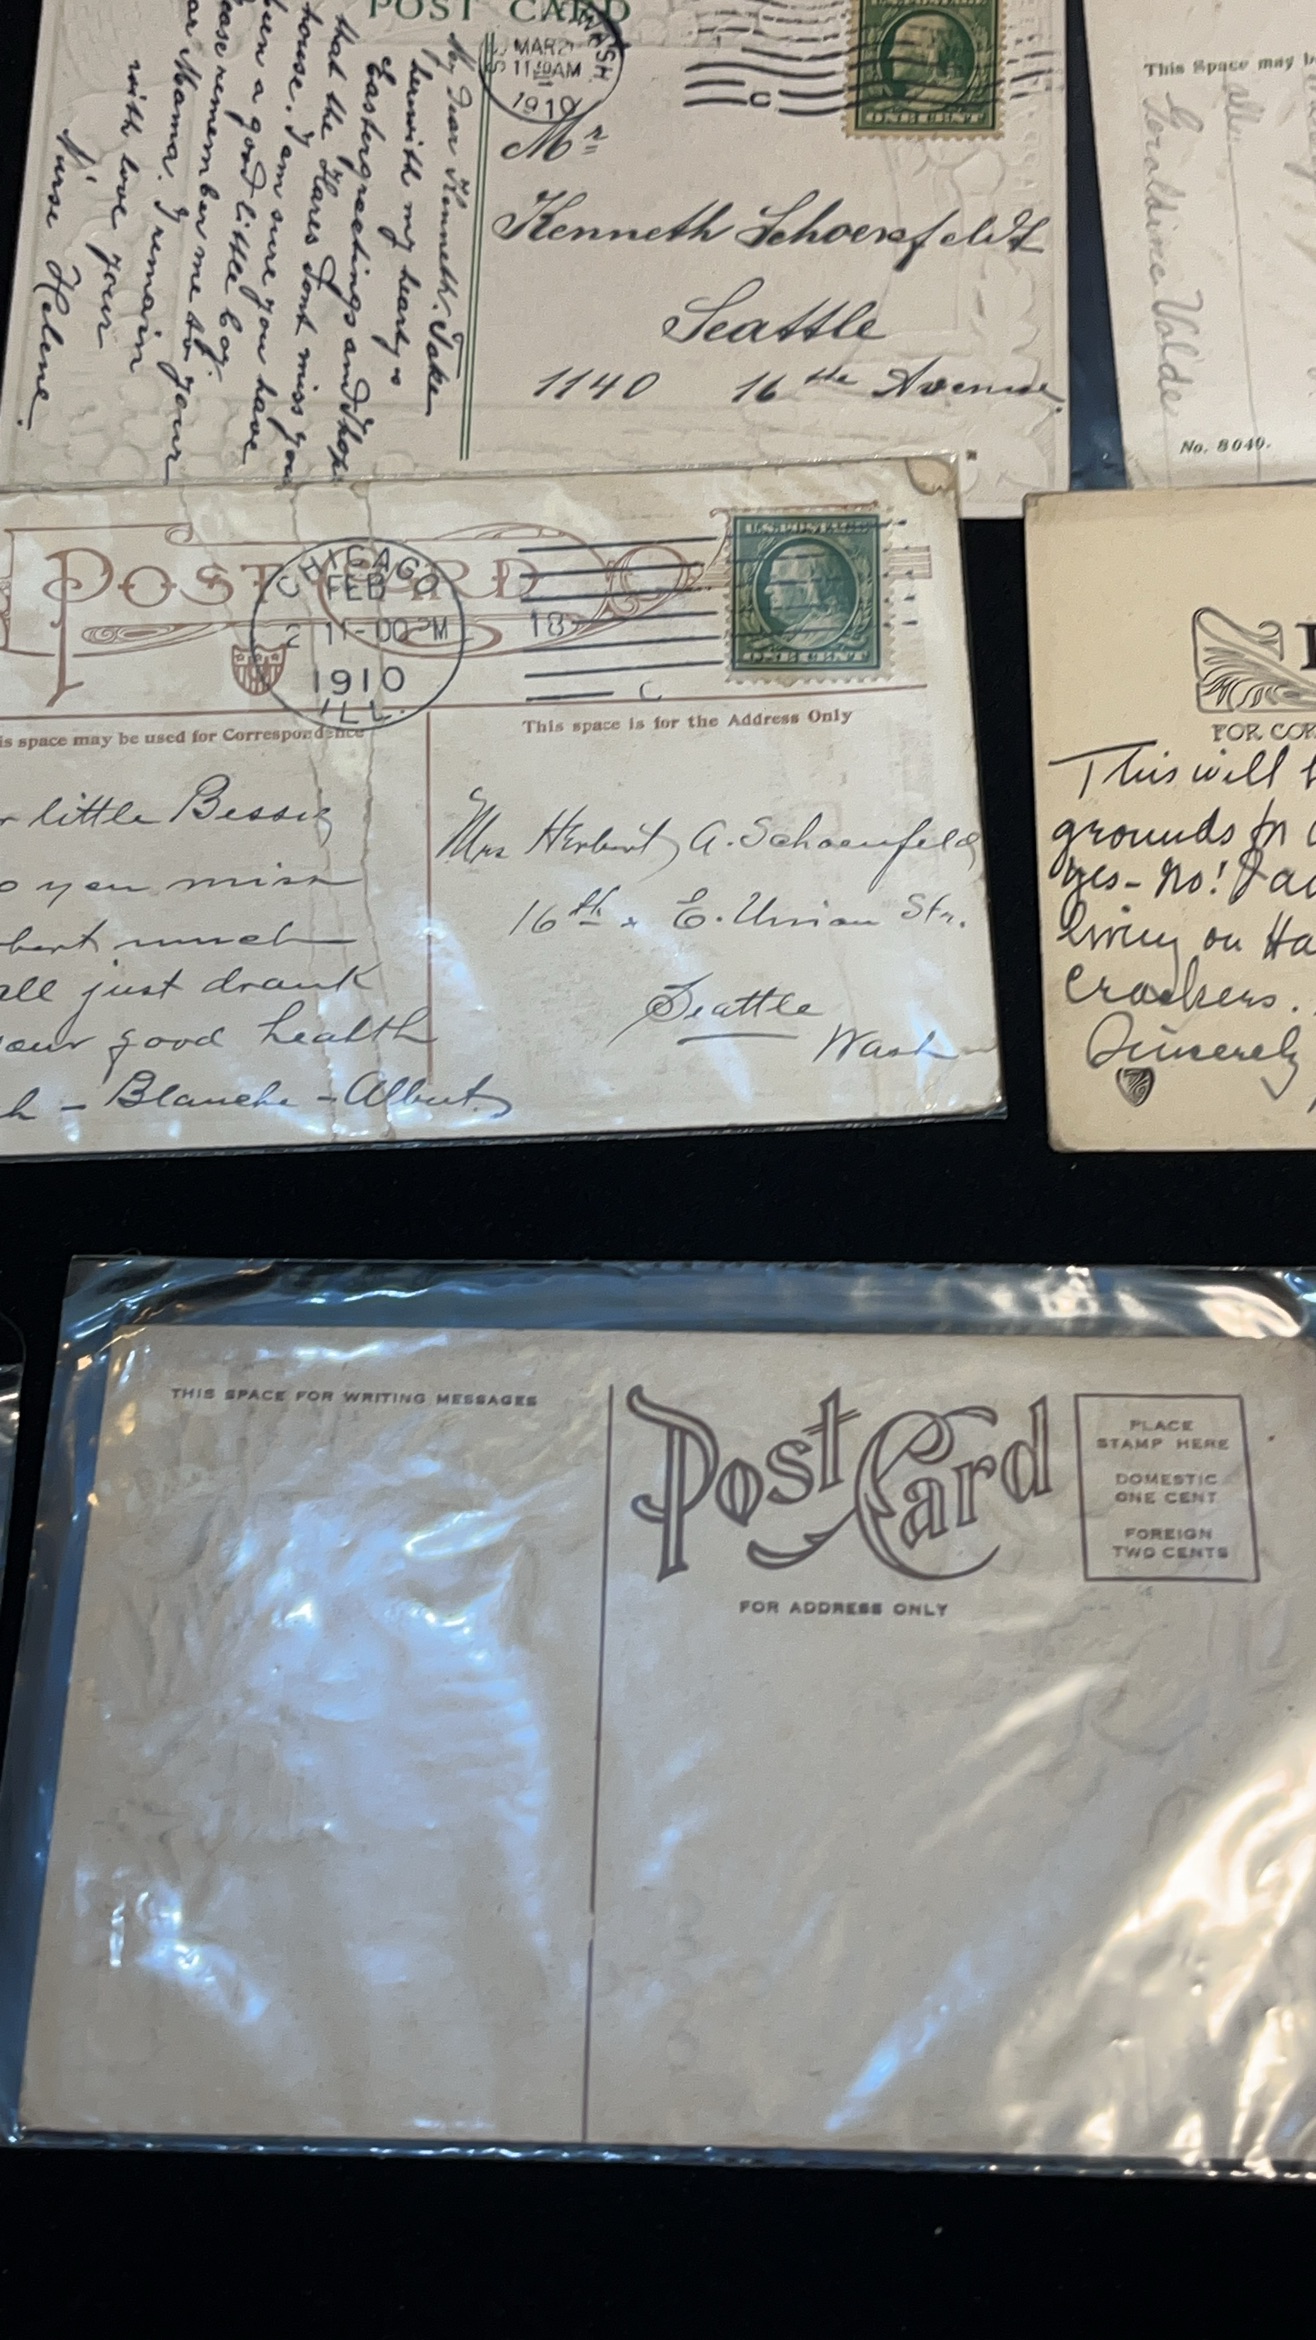 POST CARD
WASH
MAR 21
11 30 AM
1910
My Dear Kenneth. Take
herwith my hearty
Eastergreetings and I hope
that the Hares dont miss your
house. I am sure you have
been a good little boy.
remember me to your
Mama. I remain
with love your
Nurse Helene.
Mr
Kenneth Schoenfeldt
Seattle
1140 16the Avenue.
This Space may b
Geraldine Valde
No. 8049.
POST CARD
CHICAGO
FEB
2 11-00PM
1910
ILL.
18
C
U.S. POSTAGE
is space may be used for Correspondence
This space is for the Address Only
little Bessie
o you miss
much
all just drank
your good health
h - Blanche - Albert
Mrs Herbert A. Schoenfeld
16th & E. Union Str.
Seattle
Wash
FOR COR
This will b
grounds for
Yes - No!
living on Ha
Crackers.
Sincerely
THIS SPACE FOR WRITING MESSAGES
Post Card
FOR ADDRESS ONLY
PLACE
STAMP HERE
DOMESTIC
ONE CENT
FOREIGN
TWO CENTS